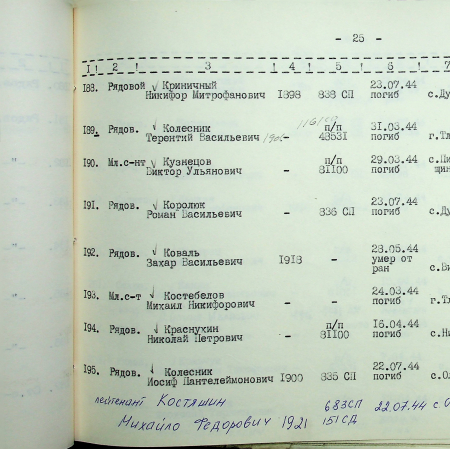 - 25 -
1 ! 2 ! 3 ! 4 ! 5 ! 6 ! 7
188. Рядовой √ Криничный 838 СП 23.07.44
Никифор Митрофанович 1898 погиб с.Ду
189. Рядов. √ Колесник п/п 31.03.44
Терентий Васильевич - 48531 погиб г.Тл
190. Мл.с-нт √ Кузнецов п/п 29.03.44
Виктор Ульянович - 81100 погиб
191. Рядов. √ Королюк 23.07.44
Роман Васильевич - 836 СП погиб с.Ду
192. Рядов. √ Коваль 28.05.44
Захар Васильевич 1918 - умер от
ран
193. Мл.с-т √ Костебелов 24.03.44
Михаил Никифорович - - погиб г.Тл
194. Рядов. √ Краснухин п/п 16.04.44
Николай Петрович - 81100 погиб
195. Рядов. √ Колесник 22.07.44
Иосиф Пантелеймонович 1900 835 СП погиб
лейтенант Костяшин 683СП 22.07.44 с.О
Михайло Федорович 1921 151СД